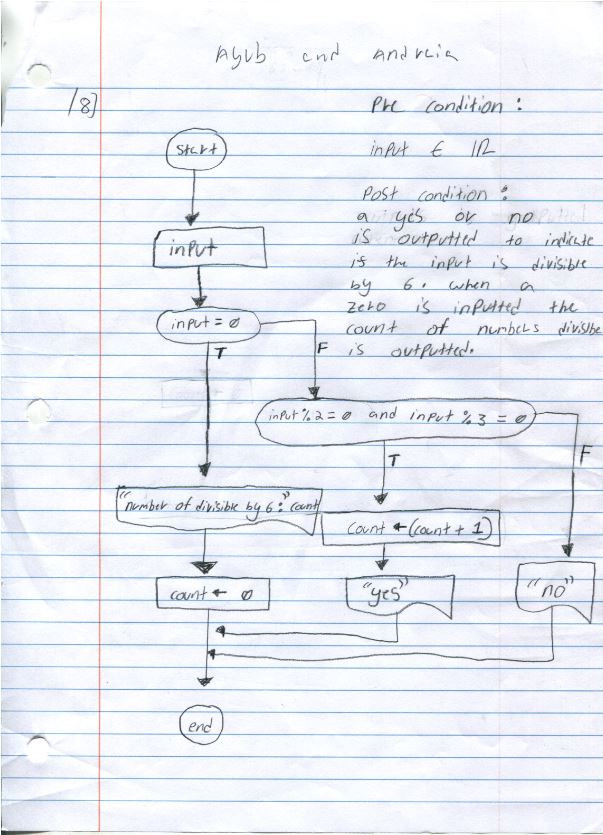 Ayub and Andreia
/8]
Pre condition:
start
input ∈ IR
Post condition:
a yes or no
is outputted to indicate
input
is the input is divisible
by 6. when a
zero is inputted the
input = ø
count of numbers divisible
T
F
is outputted.
input % 2 = ø and input % 3 = ø
T
F
"number of divisible by 6:" count
count ← (count + 1)
count ← ø
"yes"
"no"
end